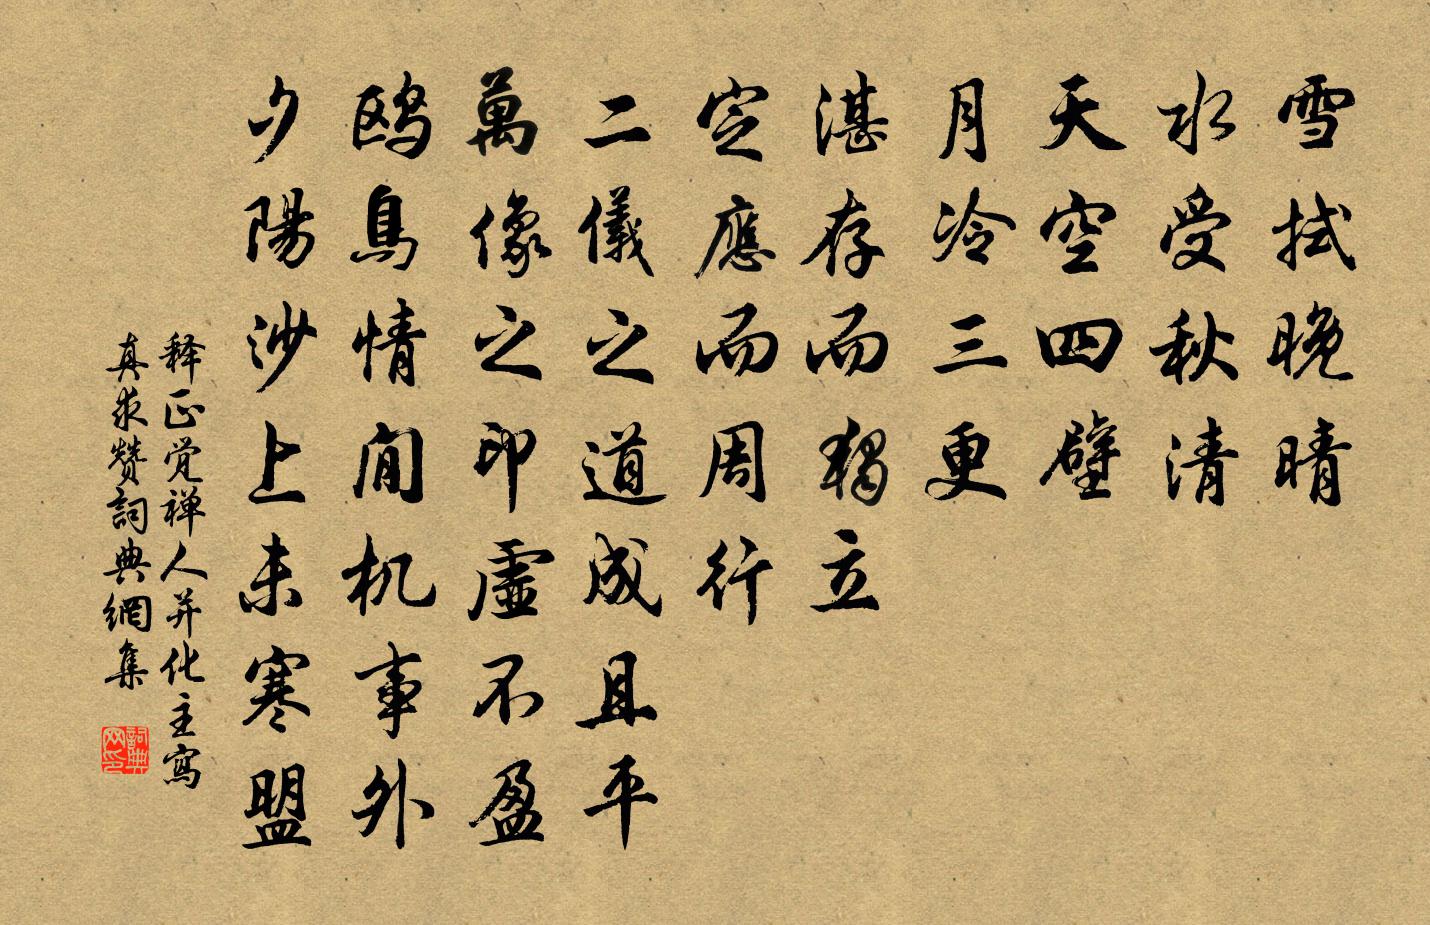 雪拭晚晴
水受秋清
天空四壁
月冷三更
湛存而獨立
定應而周行
二儀之道成且平
萬像之印虛不盈
鸥鳥情閒机事外
夕陽沙上未寒盟
释正觉禅人并化主寫
真求赞詞典網集
詞典
网印